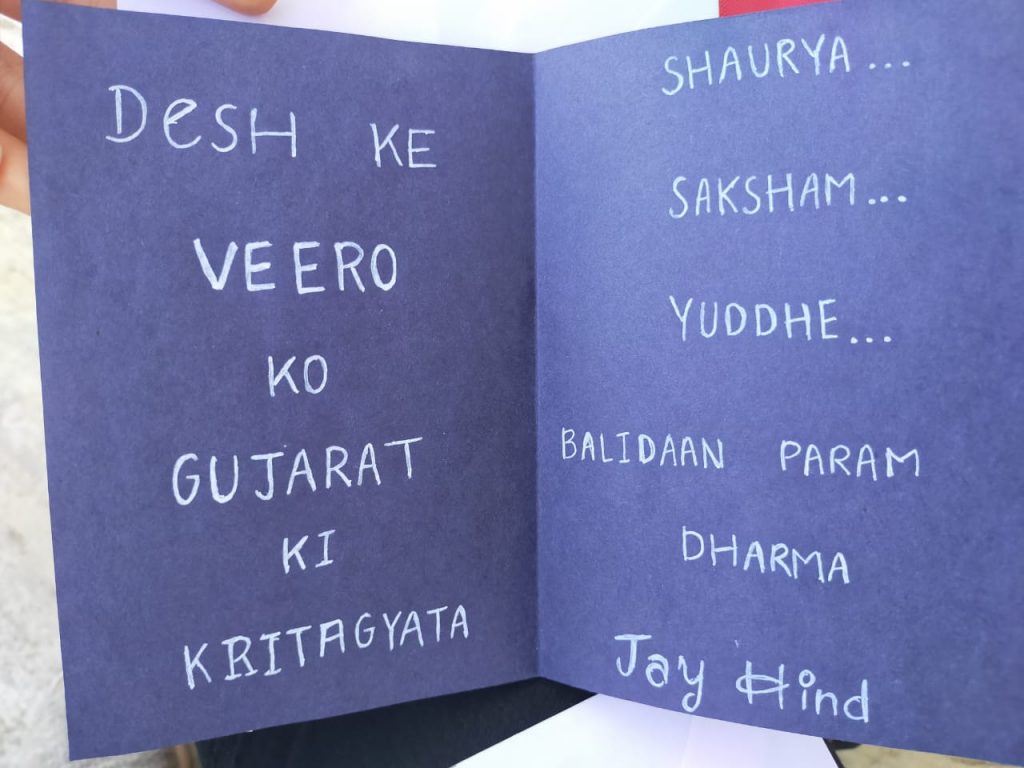 DeSH KE
VEERO
KO
GUJARAT
KI
KRITAGYATA
SHAURYA...
SAKSHAM...
YUDDHE...
BALIDAAN PARAM
DHARMA
Jay Hind